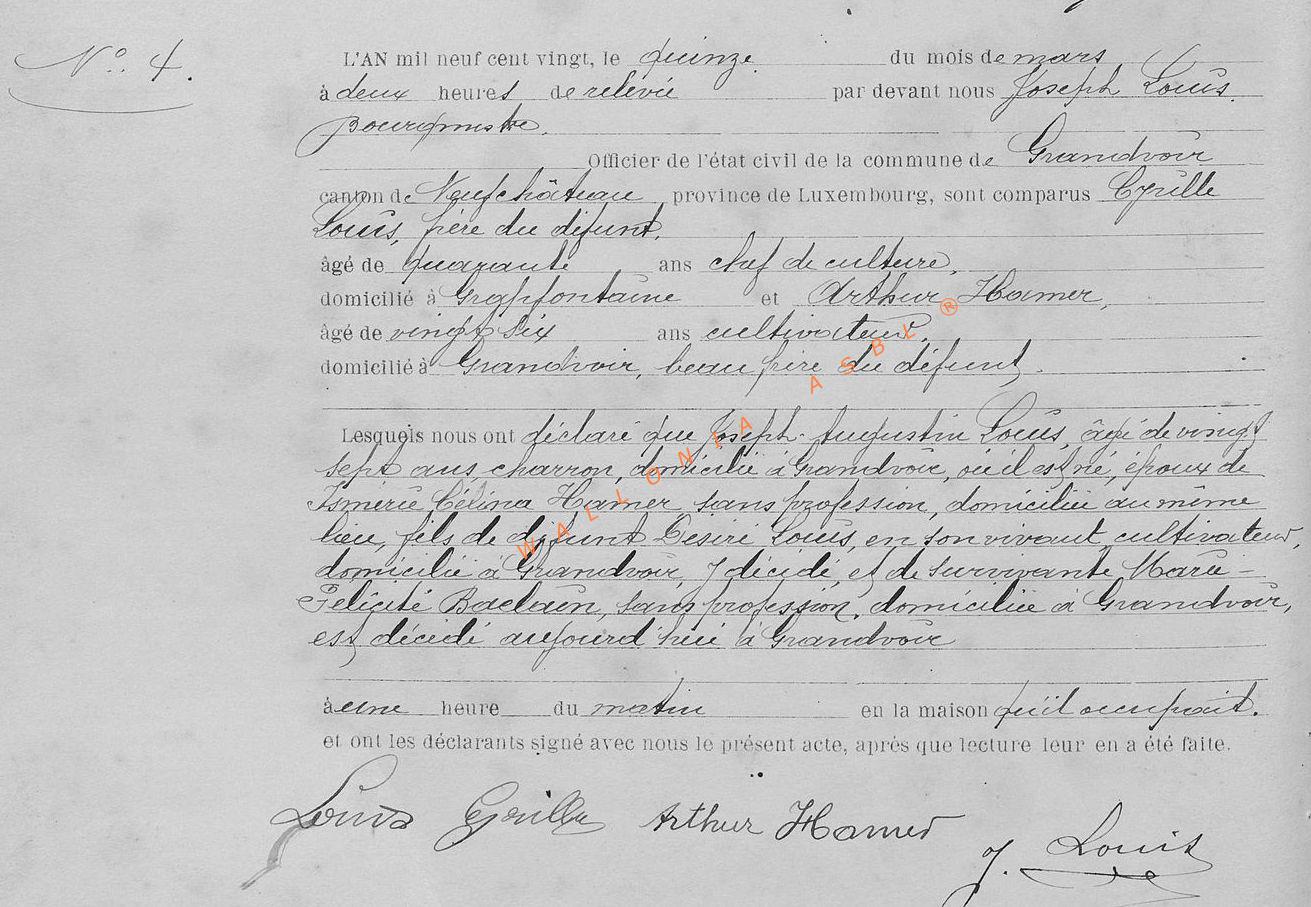 N° 4.
L'AN mil neuf cent vingt, le quinze du mois de mars
à deux heures de relevée par devant nous Joseph Louis,
Bourgmestre,
Officier de l'état civil de la commune de Grandvoir
canton de Neufchâteau province de Luxembourg, sont comparus Cyrille
Louis, frère du défunt,
âgé de quarante ans chef de culture,
domicilié à Grapfontaine et Arthur Hamer,
âgé de vingt six ans cultivateur,
domicilié à Grandvoir, beau frère du défunt,
Lesquels nous ont déclaré que Joseph-Augustin Louis, âgé de vingt
sept ans, charron, domicilié à Grandvoir, où il est né, époux de
Ismérie Célina Hamer, sans profession, domiciliée au même
lieu, fils de défunt Désiré Louis, en son vivant, cultivateur,
domicilié à Grandvoir, y décédé, et de survivante Marie-
Félicité Baclain, sans profession, domiciliée à Grandvoir,
est décédé aujourd'hui à Grandvoir
à une heure du matin en la maison qu'il occupait.
et ont les déclarants signé avec nous le présent acte, après que lecture leur en a été faite.
Louis Cyrille Arthur Hamer
J. Louis
WALLONIA ASBL ®